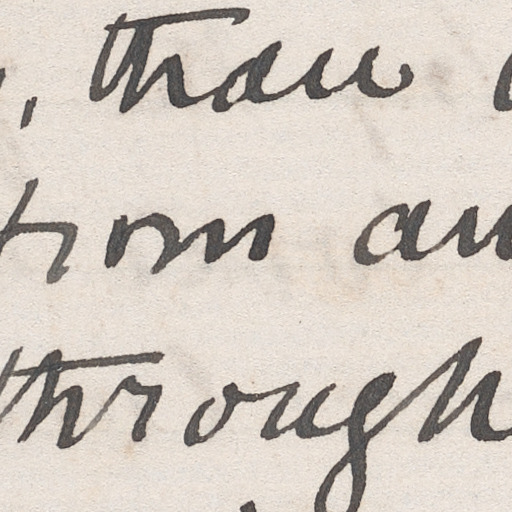 , than
from an
through